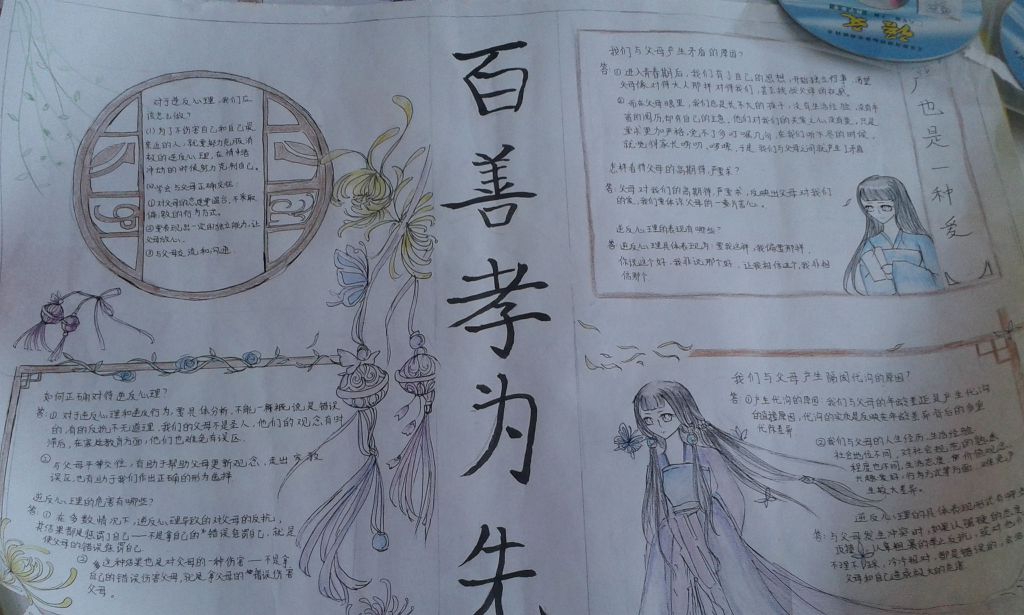 百善孝为先
对于逆反心理，我们应
该怎么做？
(1)为了不伤害自己和自己最
亲近的人，就要努力克服消
极的逆反心理，在情绪
冲动的时候努力克制自己。
(2)学会与父母正确交往。
①对父母的态度要温合，不采取
偏激的行为方式。
②要表现出一定的独立能力，让
父母放心。
③与父母交流和沟通。
如何正确对待逆反心理？
答：①对于逆反心理和逆反行为，要具体分析，不能一概说是错误
的，有的反抗不无道理，我们的父母不是圣人，他们的观念有时
滞后，在家庭教育方面，他们也难免有误区。
②与父母平等交往，有助于帮助父母更新观念，走出家教
误区，也有助于我们作出正确的行为选择
逆反心理的危害有哪些？
答：①在多数情况下，逆反心理导致的对父母的反抗，
其结果都是惩罚了自己——不是拿自己的错误惩罚自己，就是
使父母的错误惩罚自己
②这种结果也是对父母的一种伤害——不是拿
自己的错误伤害父母，就是拿父母的错误伤害
父母。
我们与父母产生矛盾的原因？
答：①进入青春期后，我们有了自己的思想，开始独立行事，渴望
父母像对待大人那样对待我们，甚至挑战父母的权威
②而在父母眼里，我们总是长不大的孩子，没有生活经验，没有丰
富的阅历，却有自己的主意，他们对我们的关爱之心没有变，只是
要求更加严格，免不了多叮嘱几句，在我们听不惯的时候，
就觉得家长唠叨、啰嗦，于是，我们与父母之间就产生了矛盾
怎样看待父母的高期待，严要求？
答：父母对我们的高期待，严要求，反映出父母对我们
的爱，我们要体谅父母的一番苦心。
逆反心理的表现有哪些？
答：逆反心理具体表现为：要我这样，我偏要那样，
你说这个好，我非说那个好，让我相信这个，我非相
信那个
严也是一种爱
我们与父母产生隔阂代沟的原因？
答：①产生代沟的原因：我们与父母的年龄差距是产生代沟
的直接原因，代沟的实质是反映在年龄差异背后的多重
代际差异
②我们与父母的人生经历，生活经验，
社会地位不同，对社会规范的熟悉
程度也不同，生活态度，价值观念，
兴趣爱好，行为方式等方面，难免产
生较大差异。
逆反心理的具体表现形式有哪些
答：与父母发生冲突时，如果以强硬的态度
顶撞，以粗暴的举止反抗，或对他们
不理不睬，冷冷相对，都是错误的，会给
父母和自己造成极大的危害
语文